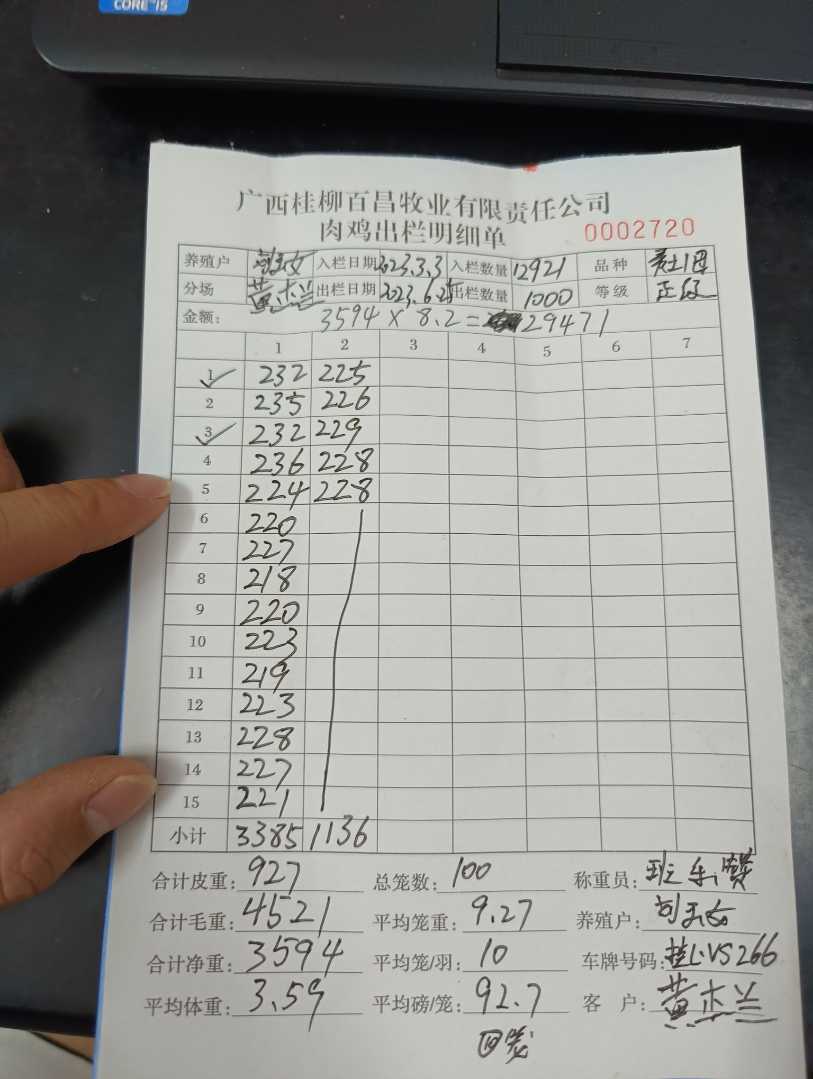 CORE i5
广西桂柳百昌牧业有限责任公司
肉鸡出栏明细单 0002720
养殖户 入栏日期 2023.3.3 入栏数量 12921 品种
分场 黄木兰 出栏日期 2023.6.25 出栏数量 1000 等级 正级
金额: 3594 × 8.2 = 29471
1 2 3 4 5 6 7
1 232 225
2 235 226
3 232 229
4 236 228
5 224 228
6 220
7 227
8 218
9 220
10 223
11 219
12 223
13 228
14 227
15 221
小计 3385 1136
合计皮重: 927 总笼数: 100 称重员: 班
合计毛重: 4521 平均笼重: 9.27 养殖户:
合计净重: 3594 平均笼/羽: 10 车牌号码: 桂L·VS266
平均体重: 3.59 平均磅/笼: 92.7 客 户: 黄木兰
回笼